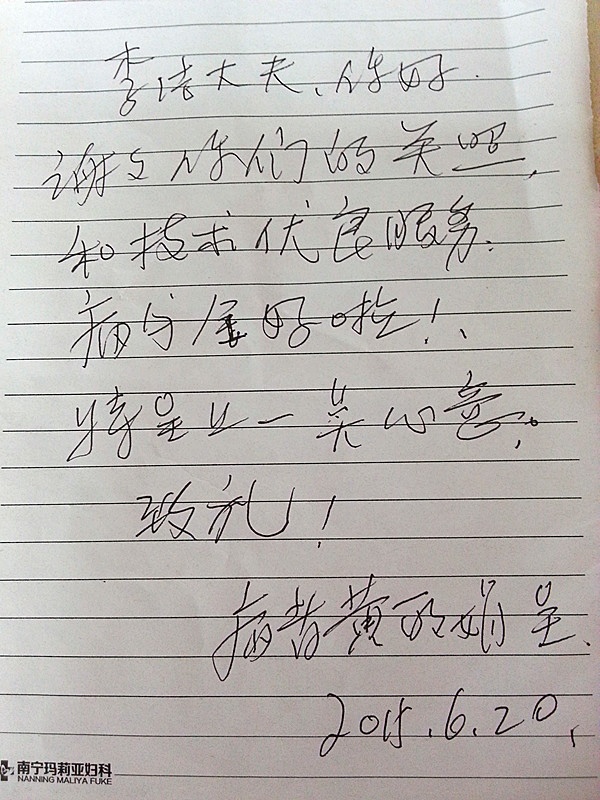 李洁大夫、你好.
谢谢你们的关照,
和技术优良服务.
病分全好啦!
特呈上一美心意.
致礼!
病者黄 娟呈.
2015.6.20,
南宁玛莉亚妇科
NANNING MALIYA FUKE